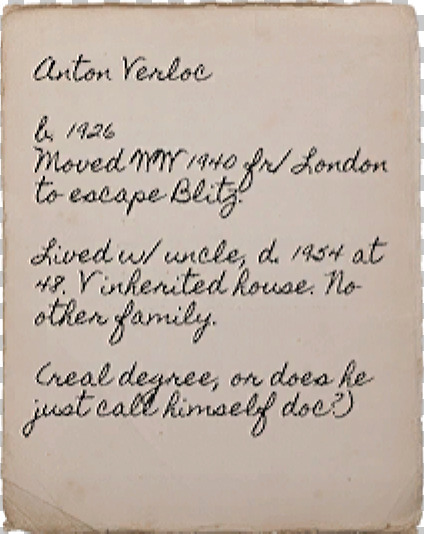 Anton Verloc
b. 1926
Moved WW 1940 fr/ London
to escape Blitz.
Lived w/ uncle, d. 1954 at
48. V inherited house. No
other family.
(real degree, or does he
just call himself doc?)